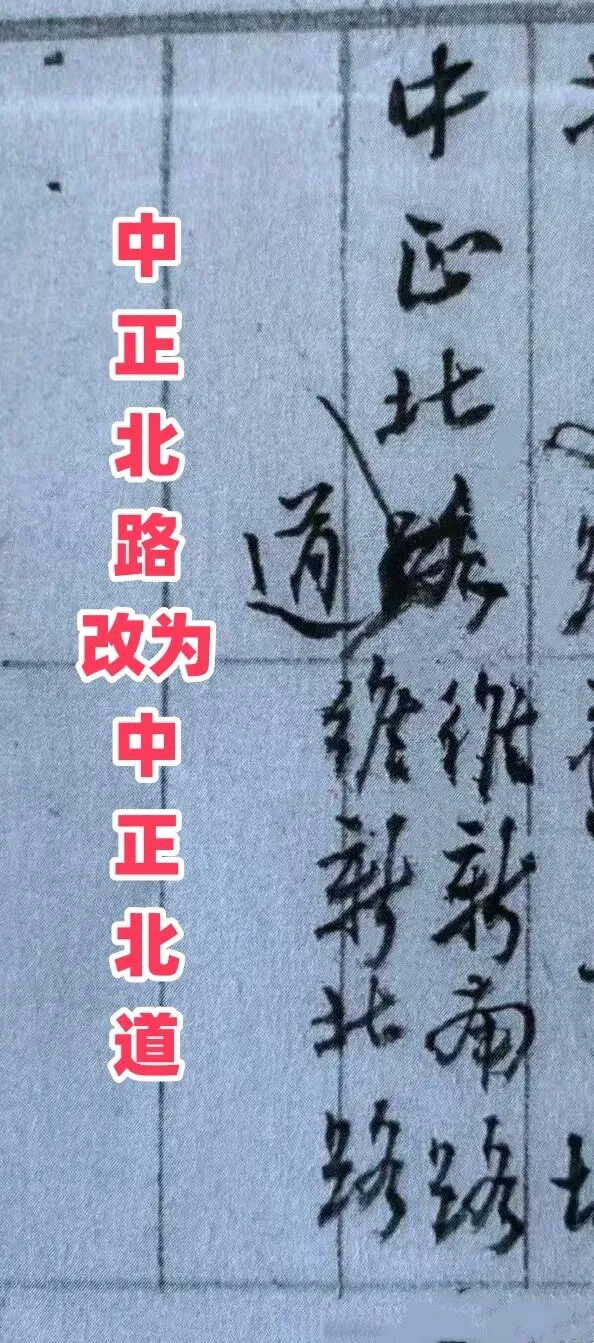 中正北路
道
維新南路
維新北路
中正北路改为中正北道